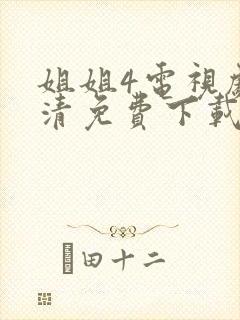 姐姐4電視
清免費下載
田十二